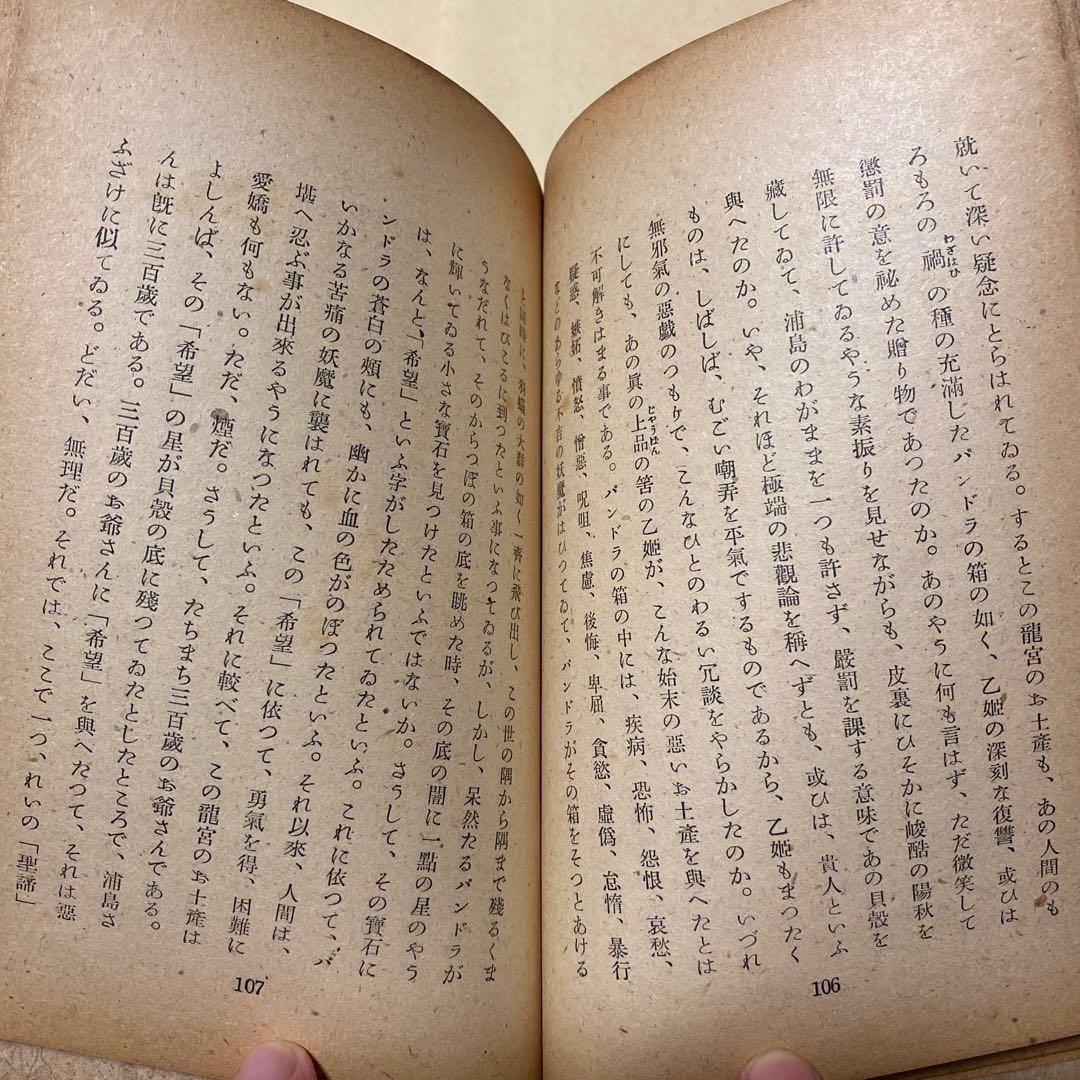 就いて深い疑念にとらはれてゐる。するとこの龍宮のお土產も、あの人間のも
ろもろの禍の種の充滿したパンドラの箱の如く、乙姬の深刻な復讐、或ひは
わざはひ
懲罰の意を祕めた贈り物であつたのか。あのやうに何も言はず、ただ微笑して
無限に許してゐるやうな素振りを見せながらも、皮裏にひそかに峻酷の陽秋を
藏してゐて、浦島のわがままを一つも許さず、嚴罰を課する意味であの貝殼を
與へたのか。いや、それほど極端の悲觀論を稱へずとも、或ひは、貴人といふ
ものは、しばしば、むごい嘲弄を平氣でするものであるから、乙姬もまつたく
無邪氣の惡戲のつもりで、こんなひとのわるい冗談をやらかしたのか。いづれ
にしても、あの眞の上品の筈の乙姬が、こんな始末の惡いお土產を與へたとは
じやうぼん
不可解きはまる事である。パンドラの箱の中には、疾病、恐怖、怨恨、哀愁、
疑惑、嫉妬、憤怒、憎惡、呪咀、焦慮、後悔、卑屈、貪慾、虛僞、怠惰、暴行
などのあらゆる不吉の妖魔がはひつてゐて、パンドラがその箱をそつとあける
106
と同時に、羽蟻の大群の如く一齊に飛び出し、この世の隅から隅まで殘るくま
なくはびこるに到つたといふ事になつてゐるが、しかし、呆然たるパンドラが
うなだれて、そのからつぽの箱の底を眺めた時、その底の闇に一點の星のやう
に輝いてゐる小さな寶石を見つけたといふではないか。さうして、その寶石に
は、なんと、「希望」といふ字がしたためられてゐたといふ。これに依つて、パ
ンドラの蒼白の頰にも、幽かに血の色がのぼつたといふ。それ以來、人間は、
いかなる苦痛の妖魔に襲はれても、この「希望」に依つて、勇氣を得、困難に
堪へ忍ぶ事が出來るやうになつたといふ。それに較べて、この龍宮のお土產は
愛嬌も何もない。ただ、煙だ。さうして、たちまち三百歲のお爺さんである。
よしんば、その「希望」の星が貝殼の底に殘つてゐたとしたところで、浦島さ
んは旣に三百歲である。三百歲のお爺さんに「希望」を與へたつて、それは惡
ふざけに似てゐる。どだい、無理だ。それでは、ここで一つ、れいの「聖諦」
107